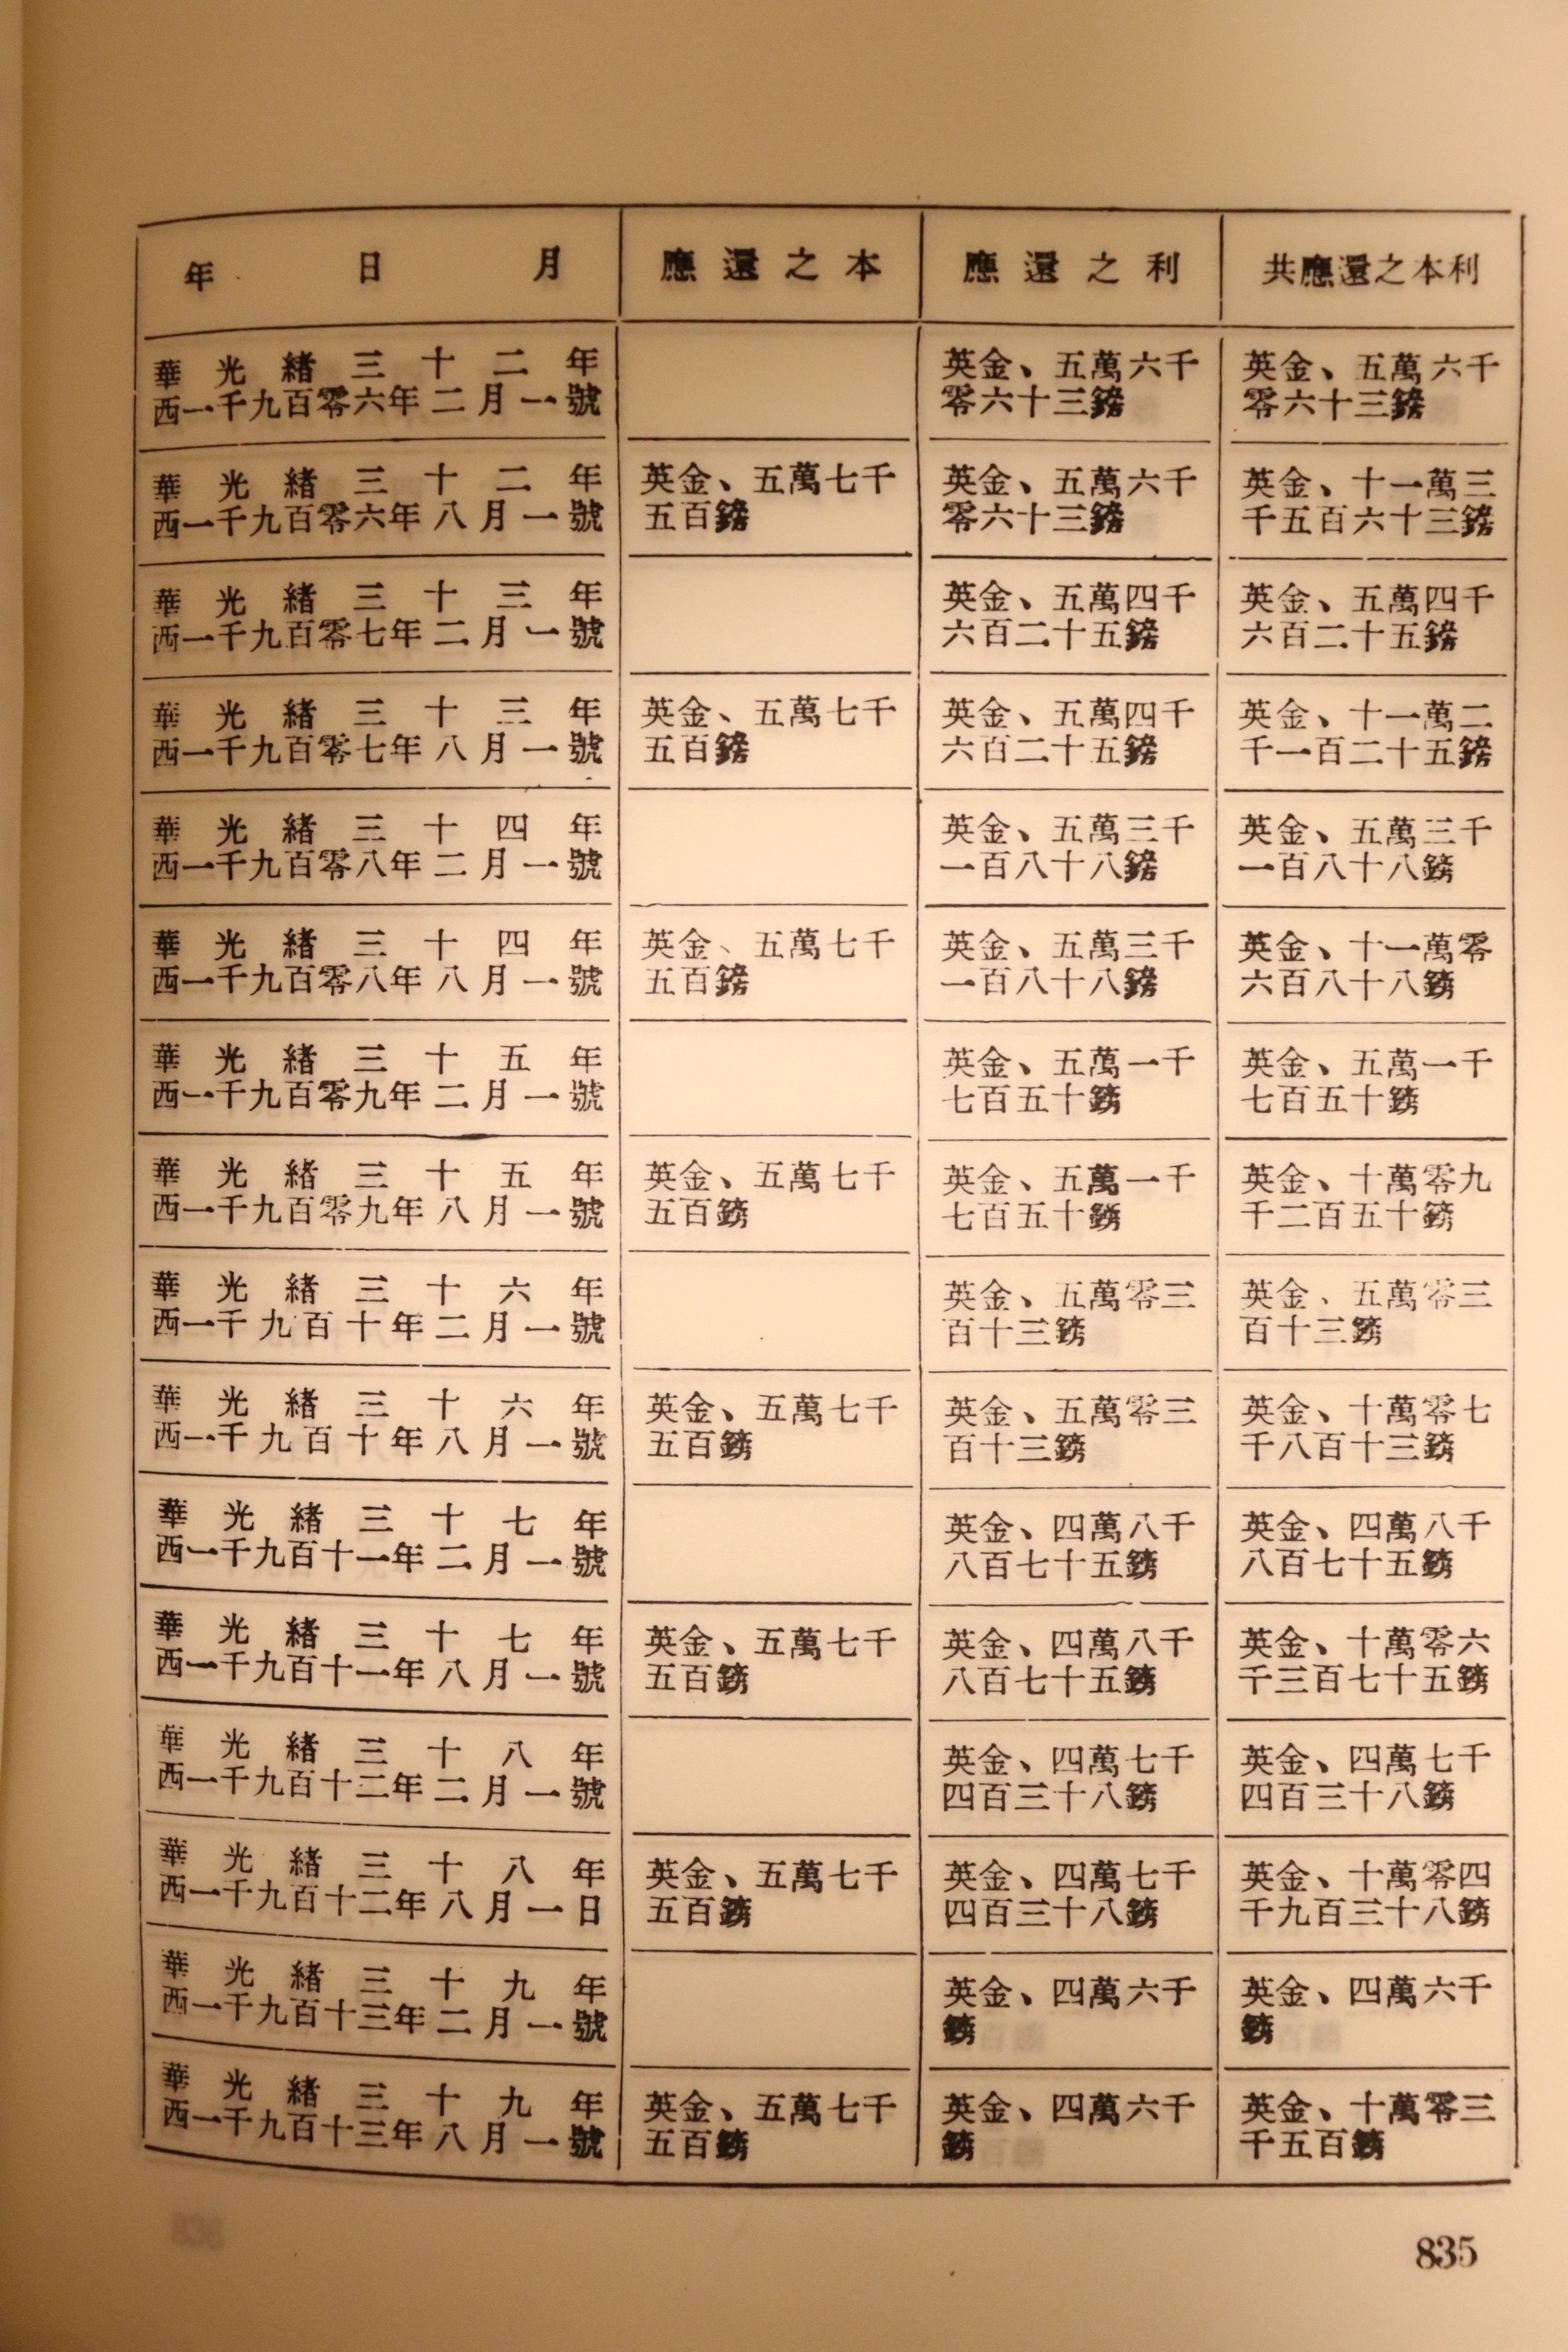 年 日 月 應還之本 應還之利 共應還之本利
華光緒三十二年
西一千九百零六年二月一號
英金、五萬六千
零六十三鎊
英金、五萬六千
零六十三鎊
華光緒三十二年
西一千九百零六年八月一號
英金、五萬七千
五百鎊
英金、五萬六千
零六十三鎊
英金、十一萬三
千五百六十三鎊
華光緒三十三年
西一千九百零七年二月一號
英金、五萬四千
六百二十五鎊
英金、五萬四千
六百二十五鎊
華光緒三十三年
西一千九百零七年八月一號
英金、五萬七千
五百鎊
英金、五萬四千
六百二十五鎊
英金、十一萬二
千一百二十五鎊
華光緒三十四年
西一千九百零八年二月一號
英金、五萬三千
一百八十八鎊
英金、五萬三千
一百八十八鎊
華光緒三十四年
西一千九百零八年八月一號
英金、五萬七千
五百鎊
英金、五萬三千
一百八十八鎊
英金、十一萬零
六百八十八鎊
華光緒三十五年
西一千九百零九年二月一號
英金、五萬一千
七百五十鎊
英金、五萬一千
七百五十鎊
華光緒三十五年
西一千九百零九年八月一號
英金、五萬七千
五百鎊
英金、五萬一千
七百五十鎊
英金、十萬零九
千二百五十鎊
華光緒三十六年
西一千九百十年二月一號
英金、五萬零三
百十三鎊
英金、五萬零三
百十三鎊
華光緒三十六年
西一千九百十年八月一號
英金、五萬七千
五百鎊
英金、五萬零三
百十三鎊
英金、十萬零七
千八百十三鎊
華光緒三十七年
西一千九百十一年二月一號
英金、四萬八千
八百七十五鎊
英金、四萬八千
八百七十五鎊
華光緒三十七年
西一千九百十一年八月一號
英金、五萬七千
五百鎊
英金、四萬八千
八百七十五鎊
英金、十萬零六
千三百七十五鎊
華光緒三十八年
西一千九百十二年二月一號
英金、四萬七千
四百三十八鎊
英金、四萬七千
四百三十八鎊
華光緒三十八年
西一千九百十二年八月一日
英金、五萬七千
五百鎊
英金、四萬七千
四百三十八鎊
英金、十萬零四
千九百三十八鎊
華光緒三十九年
西一千九百十三年二月一號
英金、四萬六千
鎊
英金、四萬六千
鎊
華光緒三十九年
西一千九百十三年八月一號
英金、五萬七千
五百鎊
英金、四萬六千
鎊
英金、十萬零三
千五百鎊
835